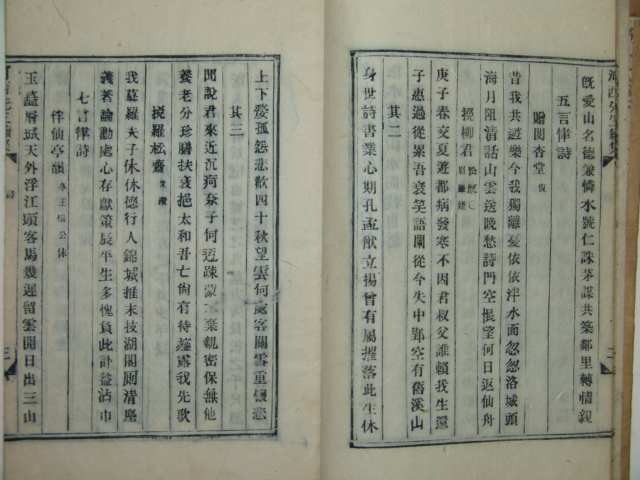 旣愛山名德兼憐水號仁誅茅謀共築鄰里轉情親
五言律詩
贈閔杏堂 復
昔我共遊樂今我獨離憂依依泮水面忽忽洛城頭
海月阻清話山雲送晚愁詩門空悵望何日返仙舟
挽柳君
庚子春交夏遊都病發寒不因君叔父誰賴我生還
子惠過從累吾哀笑語闌從今失中郢空有舊溪山
其二
身世詩書業心期孔孟猷立揚曾有屬摧落此生休
上下婺孤怨悲歡四十秋望雲何處客關雪重懷悲
其三
聞說君來近沉痾奈子何迃疎蒙不棄親密保無他
養老分珍膳扶衰挹太和吾亡尙有待薤露我先歌
挽羅松齋
我慕羅夫子休休德行人錦城推末技湖閣厠清塵
義著論勳處心存獻策辰平生多愧負此訃益沾巾
七言律詩
伴仙亭韻
玉蓋層城天外浮江頭客馬幾遲留雲開日出三山
三